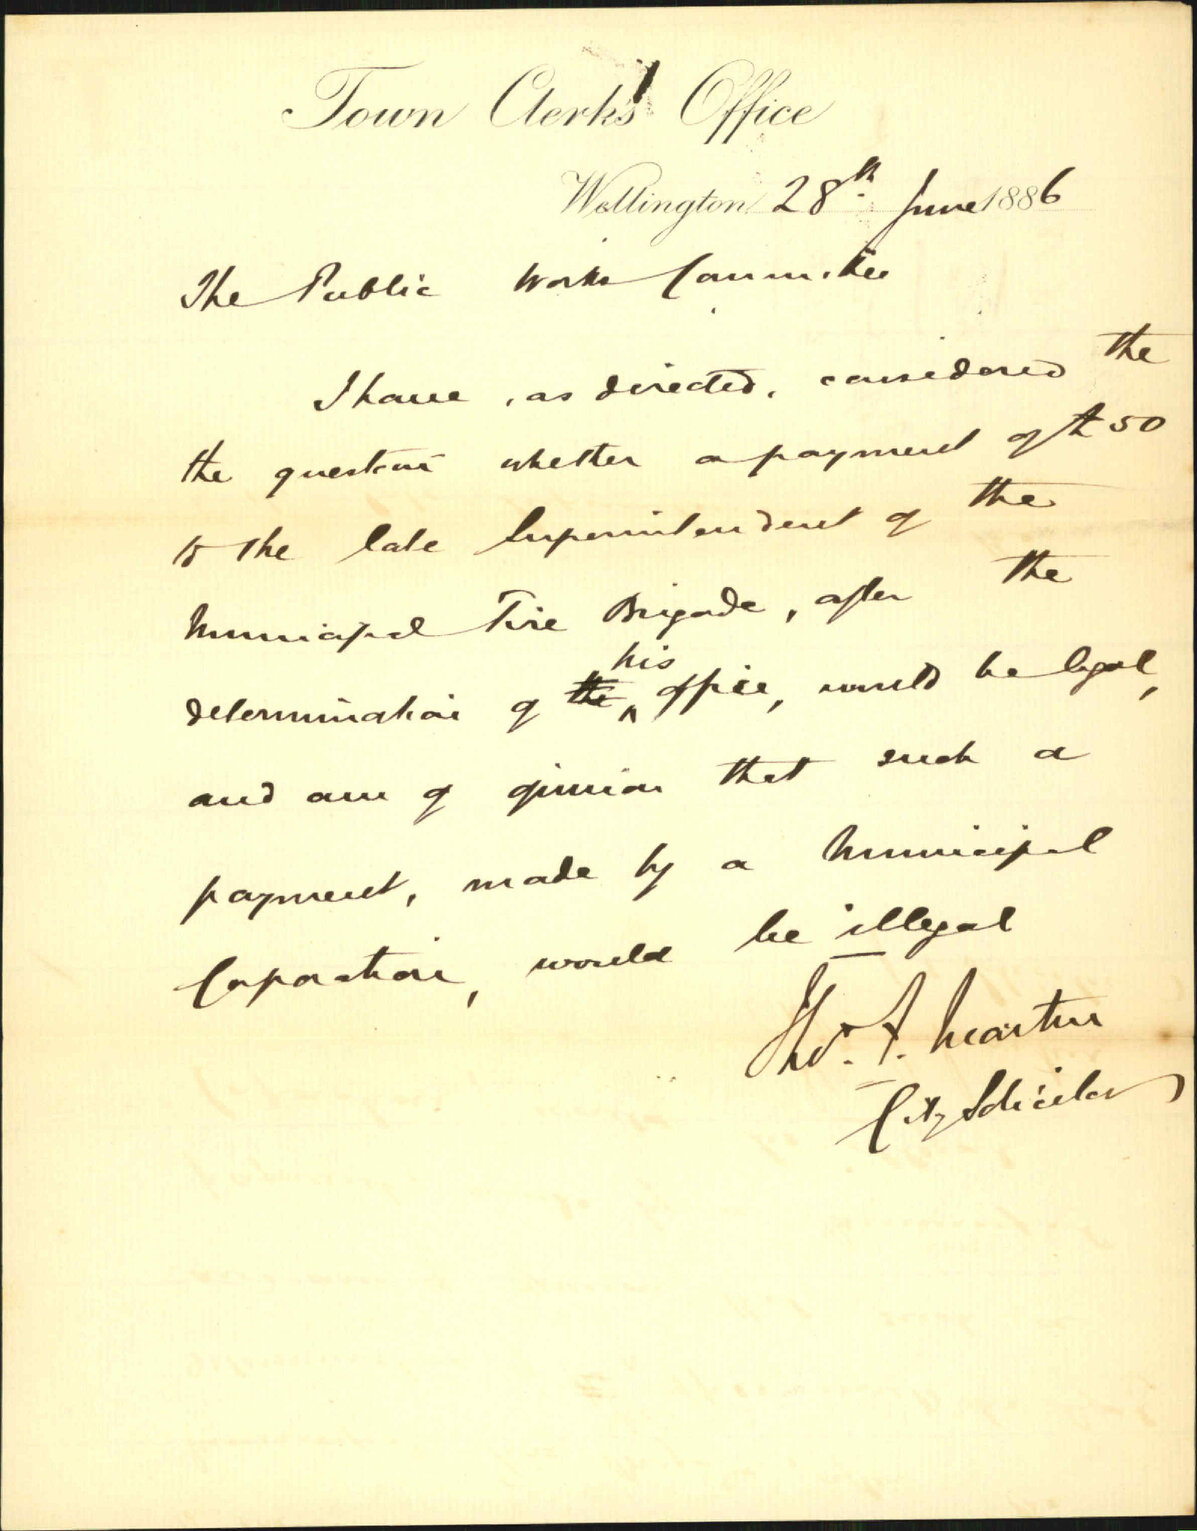 Town Clerk's Office
Wellington 28th June 1886
The Public Works Committee
I have, as directed, considered the
the question whether a payment of £50
to the late Superintendent of the
Municipal Fire Brigade, after the
determination of the his office, would be legal,
and am of opinion that such a
payment, made by a Municipal
Corporation, would be illegal
Thos. F. Martin
City Solicitor